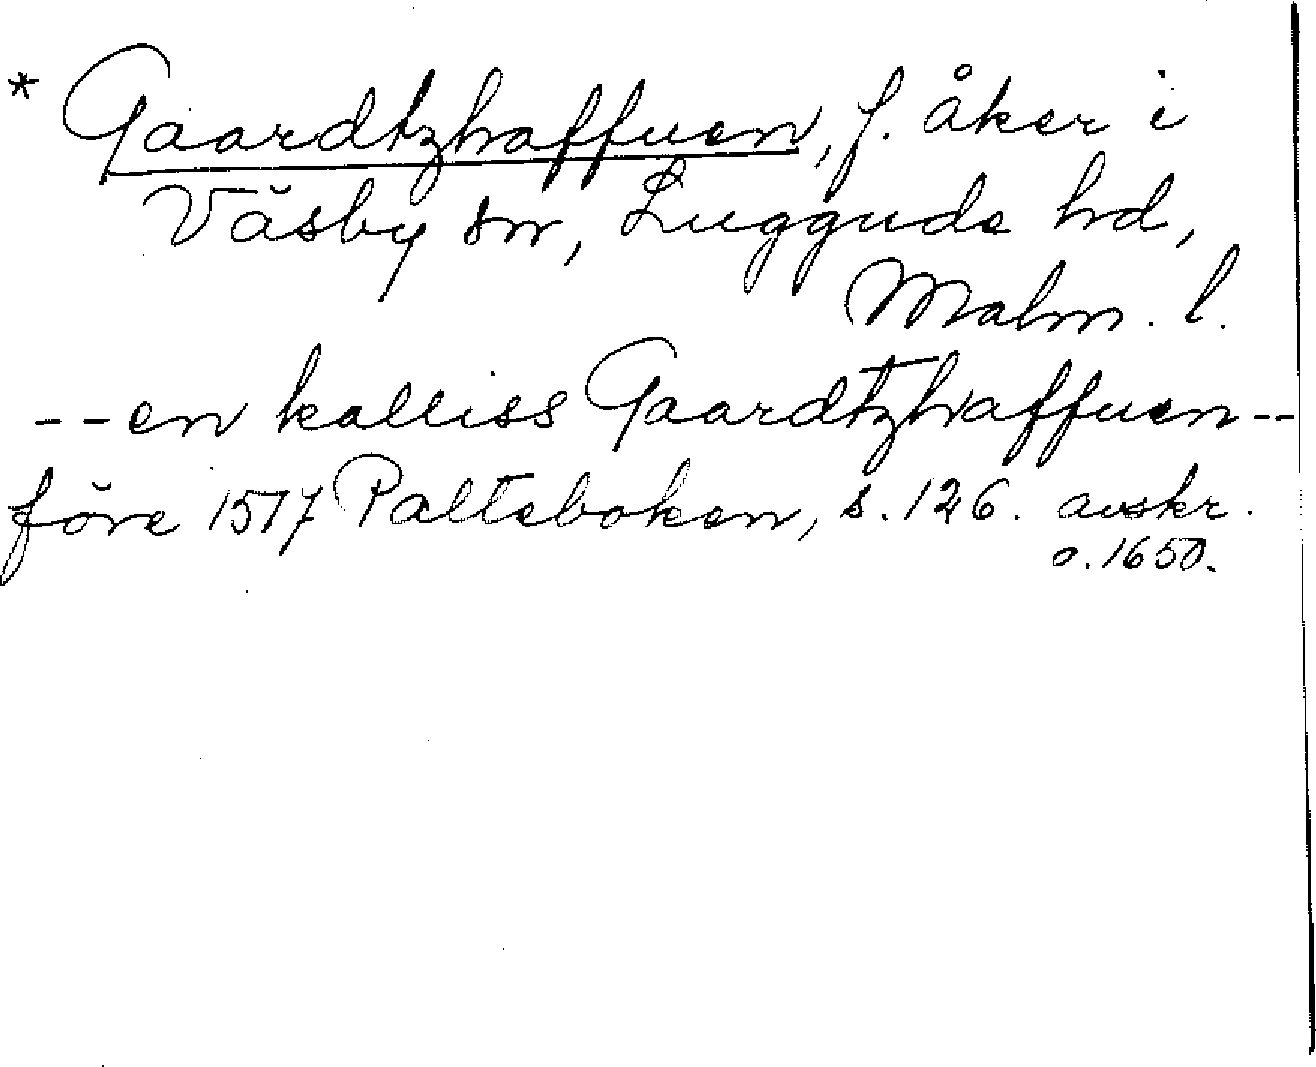 * Gaardtzhaffuen, f. åker i
Väsby sn, Luggude hd,
Malm. l.
-- en kalliss Gaardtzhaffuen --
före 1517 Palteboken, s. 126. avskr.
o. 1650.